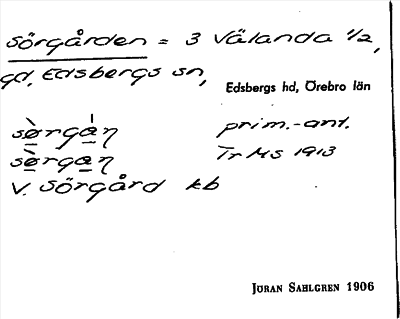 Sörgården = 3 Välanda 1/2,
gd, Edsbergs sn,
Edsbergs hd, Örebro län
prim.-ant.
Tr Ms 1913
V. Sörgård kb
JÖRAN SAHLGREN 1906